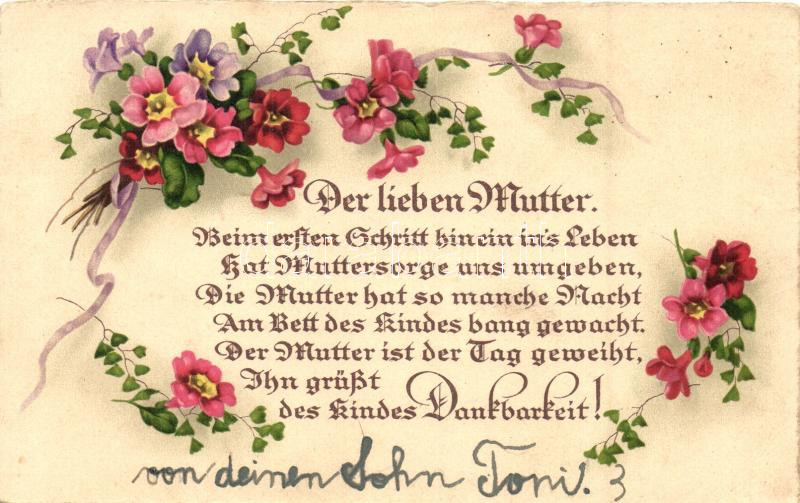 Der lieben Mutter.
Beim ersten Schritt hinein in's Leben
Hat Muttersorge uns umgeben,
Die Mutter hat so manche Nacht
Am Bett des Kindes bang gewacht.
Der Mutter ist der Tag geweiht,
Ihn grüßt
des Kindes Dankbarkeit!
von deinen Sohn Toni.